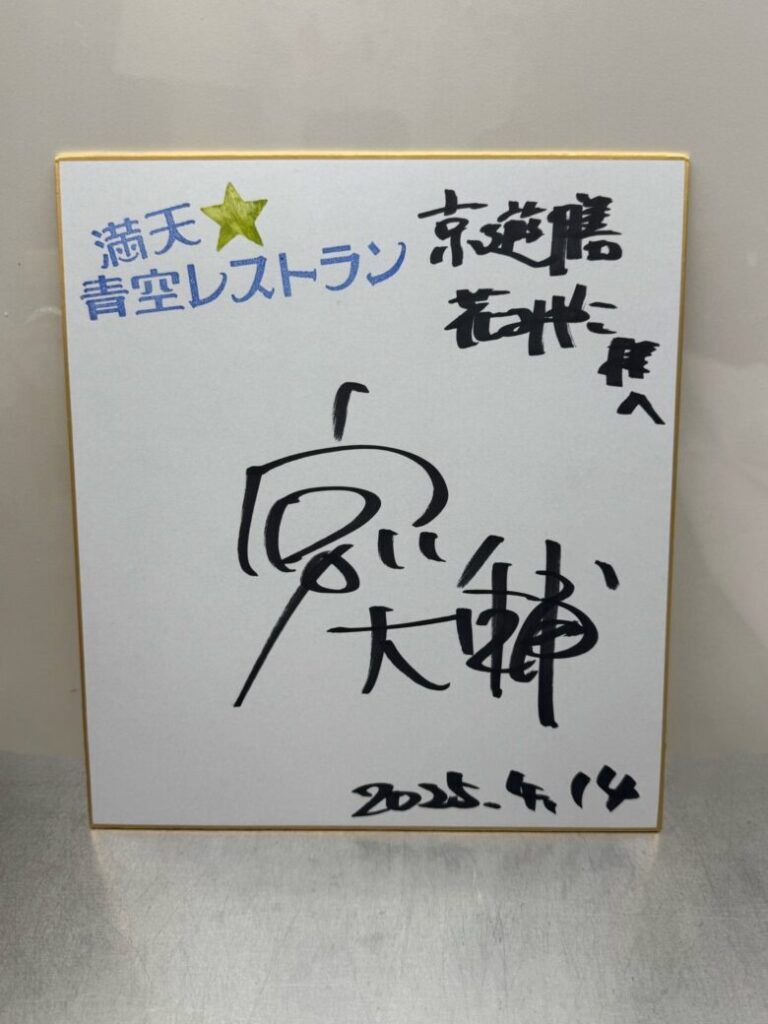 満天★
青空レストラン
京遊膳
花みやこ
様へ
宮川
大輔
2025.4.14